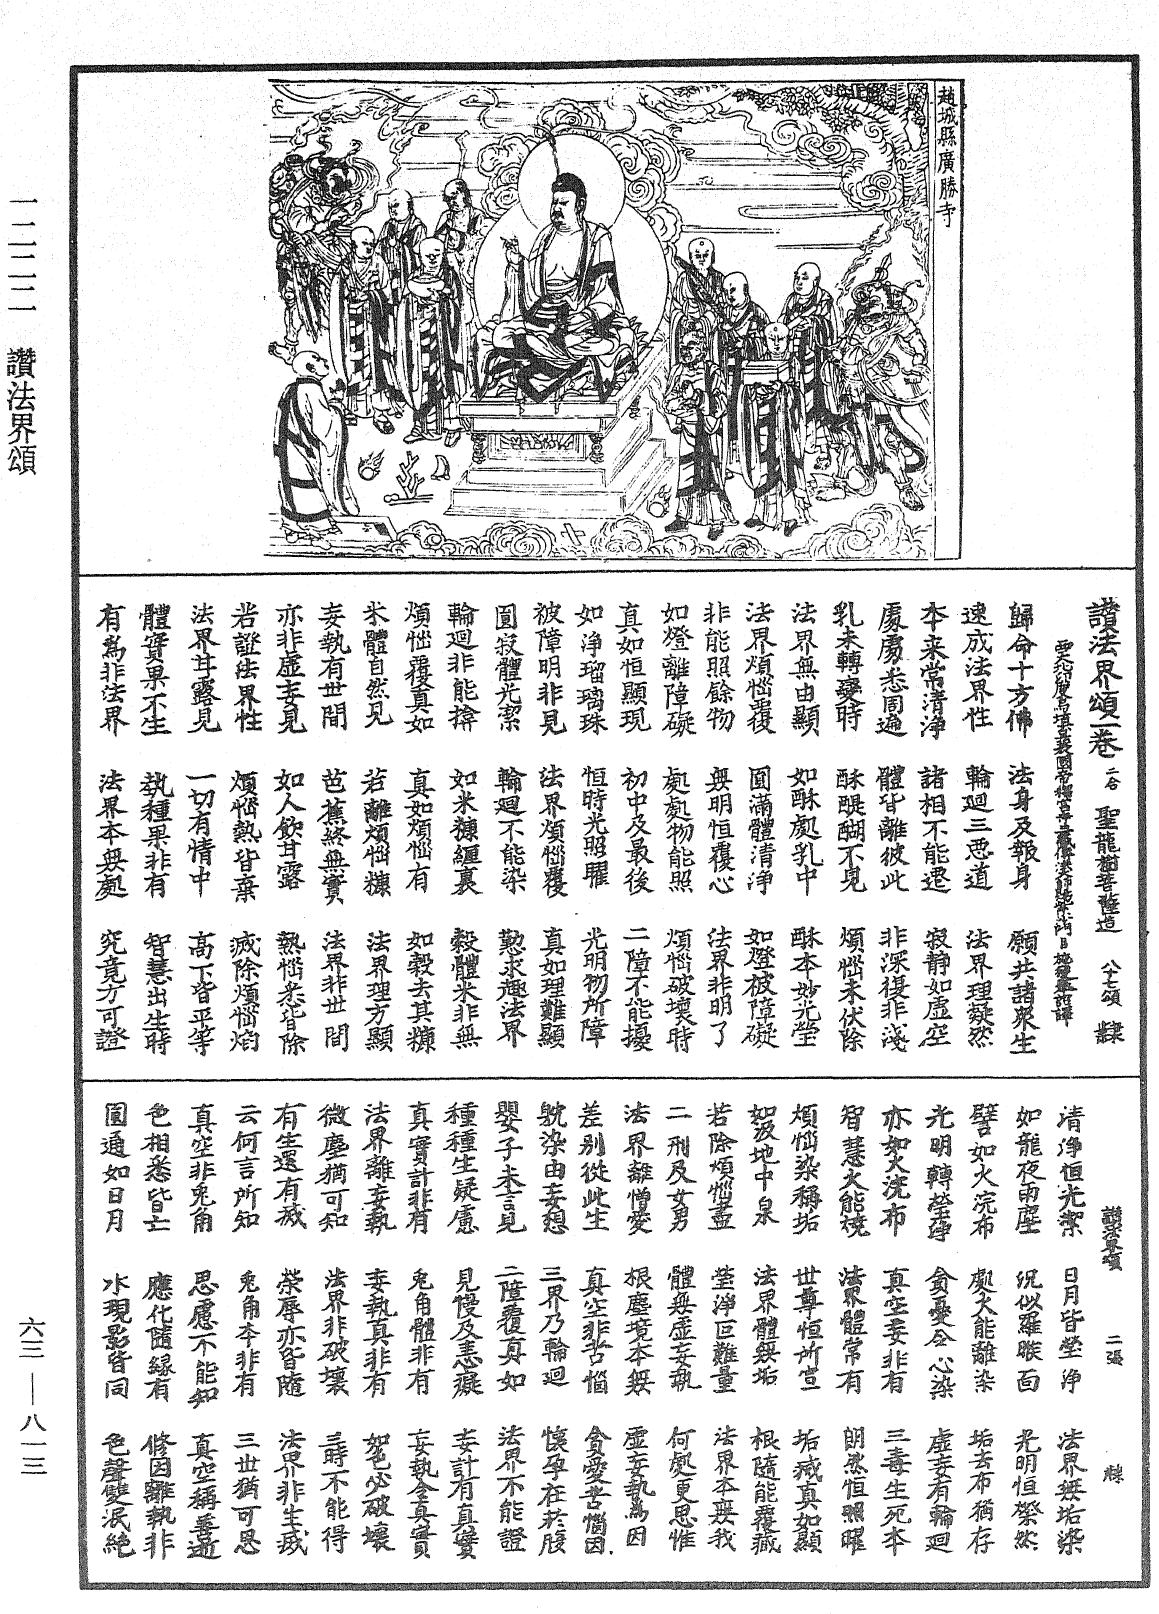 趙城縣廣勝寺
一二二二 讚法界頌
讃法界頌一卷 聖龍樹菩薩造 八十七頌 隸
帝釋宮寺三藏傳法大師賜紫沙門臣施護奉詔譯
歸命十方佛 法身及報身 願共諸衆生
速成法界性 輪迴三惡道 法界理凝然
本来常清淨 諸相不能遷 寂静如虛空
處處悉周遍 體皆離彼此 非深復非淺
乳未轉變時 酥醍醐不見 煩惱未伏除
法界無由顯 如酥處乳中 酥本妙光瑩
法界煩惱覆 圓滿體清淨 如燈被障礙
非能照餘物 無明恒覆心 法界非明了
如燈離障礙 處處物能照 煩惱破壞時
真如恒顯現 初中及最後 二障不能擾
如淨瑠璃珠 恒時光照曜 光明物所障
被障明非見 法界煩惱覆 真如理難顯
圓寂體光潔 輪迴不能染 懃求趣法界
輪迴非能揜 如米糠纏裹 穀體米非無
煩惱覆真如 真如煩惱有 如穀去其糠
米體自然見 若離煩惱糠 法界理方顯
妄執有世間 芭蕉終無實 法界非世間
亦非虛妄見 如人飲甘露 熱惱悉皆除
若證法界性 煩惱熱皆棄 滅除煩惱焰
法界甘露見 一切有情中 高下皆平等
體實果不生 執種果非有 智慧出生時
有為非法界 法界本無處 究竟方可證
讃法界頌 二張 隸
清淨恒光潔 日月皆瑩淨 法界無垢染
如龍夜雨塵 況似羅睺面 光明恒粲然
譬如火浣布 處火能離染 垢去布猶存
光明轉瑩淨 貪愛令心染 虛妄有輪迴
亦如火浣布 真空妄非有 三毒生死本
智慧火能燒 法界體常有 朗然恒照曜
煩惱染稱垢 世尊恒所宣 垢滅真如顯
如汲地中泉 法界體無垢 根隨能覆藏
若除煩惱盡 瑩淨叵難量 法界本無我
二形及女男 體無虛妄執 何處更思惟
法界離憎愛 根塵境本無 虛妄執為因
差別從此生 真空非苦惱 貪愛苦惱因
躭染由妄想 三界乃輪迴 懷孕在於腹
嬰子未言見 二障覆真如 法界不能證
種種生疑慮 見慢及恚癡 妄計有真實
真實計非有 兎角體非有 妄執令真實
法界離妄執 妄執真非有 如色必破壞
微塵猶可知 法界非破壞 三時不能得
有生還有滅 榮辱亦皆隨 法界非生滅
云何言所知 兎角本非有 三世猶可思
真空非兎角 思慮不能知 真空稱善逝
色相悉皆亡 應化隨緣有 修因離執非
圓通如日月 水現影皆同 色聲雙泯絕
六三—八一三